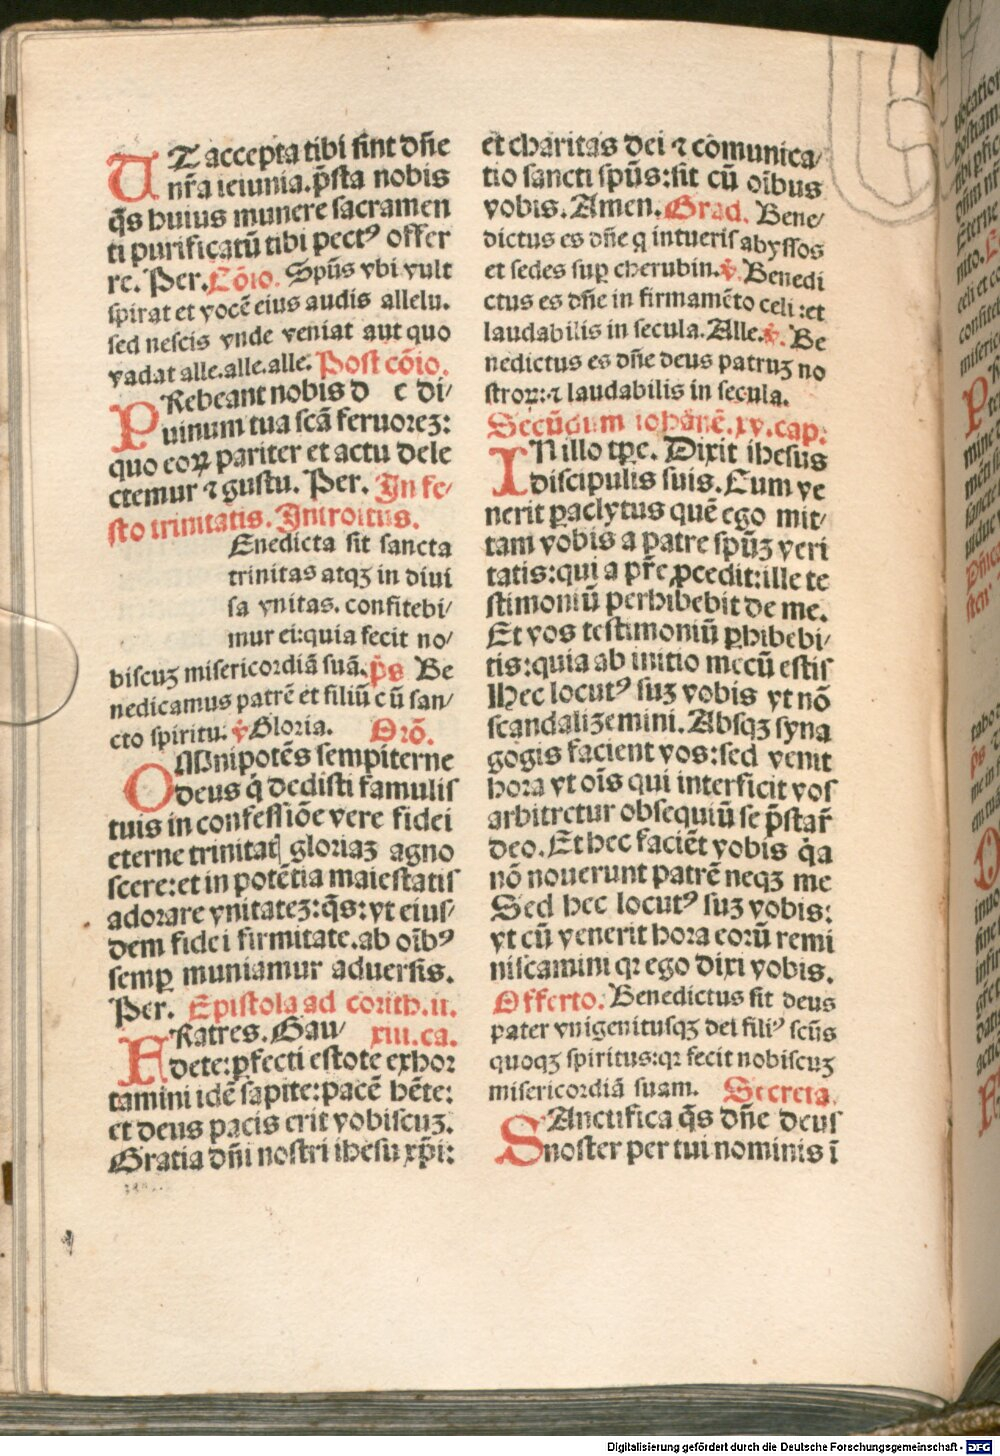 UT accepta tibi sint dñe
nr̃a ieiunia. p̃sta nobis
q̃s huius munere sacramen
ti purificatũ tibi pectꝰ offer
re. Per. Cõio. Spũs vbi vult
spirat et vocẽ eius audis allelu.
sed nescis vnde veniat aut quo
vadat alle. alle. alle. Post cõio.
PRebeant nobis d c di/
uinum tua scã feruoreꝫ:
quo eoꝝ pariter et actu dele
ctemur ⁊ gustu. Per. In fe/
sto trinitatis. Introitus.
Enedicta sit sancta
trinitas atqꝫ in diui
sa vnitas. confitebi/
mur ei: quia fecit no/
biscuꝫ misericordiã suã. p̃s Be
nedicamus patrẽ et filiũ cũ san/
cto spiritu. v̊ Gloria. Orõ.
OMnipotẽs sempiterne
deus q̇ dedisti famulis
tuis in confessiõe vere fidei
eterne trinitatꝭ gloriaꝫ agno
scere: et in potẽtia maiestatis
adorare vnitateꝫ: q̃s: vt eius/
dem fidei firmitate. ab oĩbꝰ
semꝑ muniamur aduersis.
Per. Epistola ad corith. ii.
FRatres. Gau/ xiii. ca.
dete: ꝑfecti estote exhor
tamini idẽ sapite: pacẽ hẽte:
et deus pacis erit vobiscuꝫ.
Gratia dñi nostri ihesu xp̃i:
et charitas dei ⁊ cõmunica/
tio sancti spũs: sit cũ oĩbus
vobis. Amen. Grad. Bene/
dictus es dñe q intueris abyssos
et sedes suꝑ cherubin. v̊. Benedi
ctus es dñe in firmamẽto celi: et
laudabilis in secula. Alle. v̊. Be
nedictus es dñe deus patruꝫ no
stroꝝ: ⁊ laudabilis in secula.
Secũdum iohãnẽ. xv. cap.
IN illo tꝑe. Dixit ihesus
discipulis suis. Cum ve
nerit ꝑaclytus quẽ ego mit/
tam vobis a patre spũꝫ veri
tatis: qui a pr̃e ꝓcedit: ille te
stimoniũ perhibebit de me.
Et vos testimoniũ ꝑhibebi/
tis: quia ab initio mecũ estis
Hec locutꝰ suꝫ vobis vt nõ
scandalizemini. Absqꝫ syna
gogis facient vos: sed venit
hora vt oĩs qui interficit vos
arbitretur obsequiũ se p̃star̃
deo. Et hec faciẽt vobis q̇a
nõ nouerunt patrẽ neqꝫ me
Sed hec locutꝰ suꝫ vobis:
vt cũ venerit hora eorũ remi
niscamini qꝛ ego dixi vobis.
Offerto. Benedictus sit deus
pater vnigenitusqꝫ dei filiꝰ scũs
quoqꝫ spiritus: qꝛ fecit nobiscuꝫ
misericordiã suam. Secreta.
SAnctifica q̃s dñe deus
noster per tui nominis ĩ
Digitalisierung gefördert durch die Deutsche Forschungsgemeinschaft - DFG